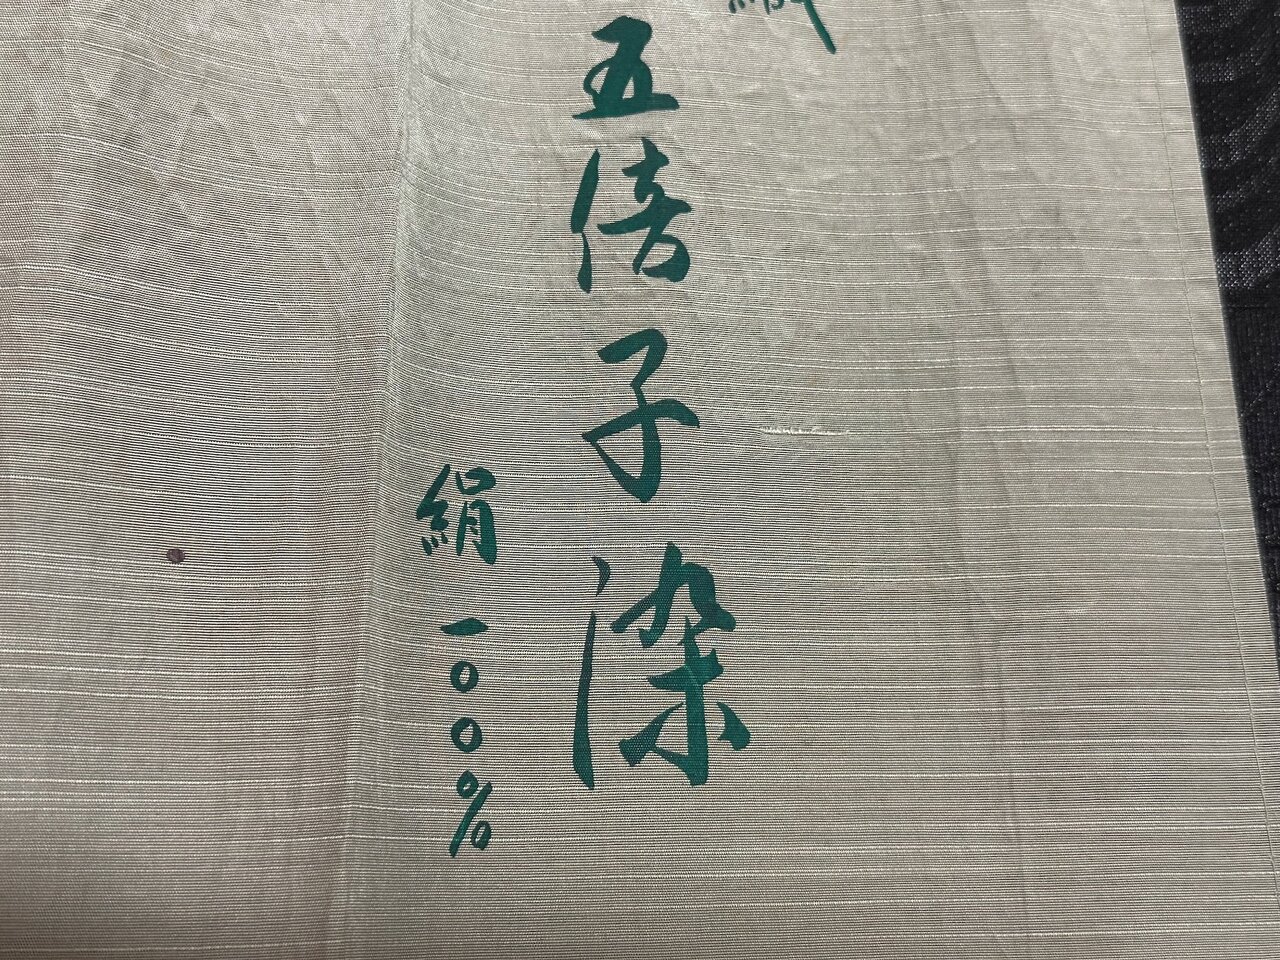 五倍子染
絹一〇〇%